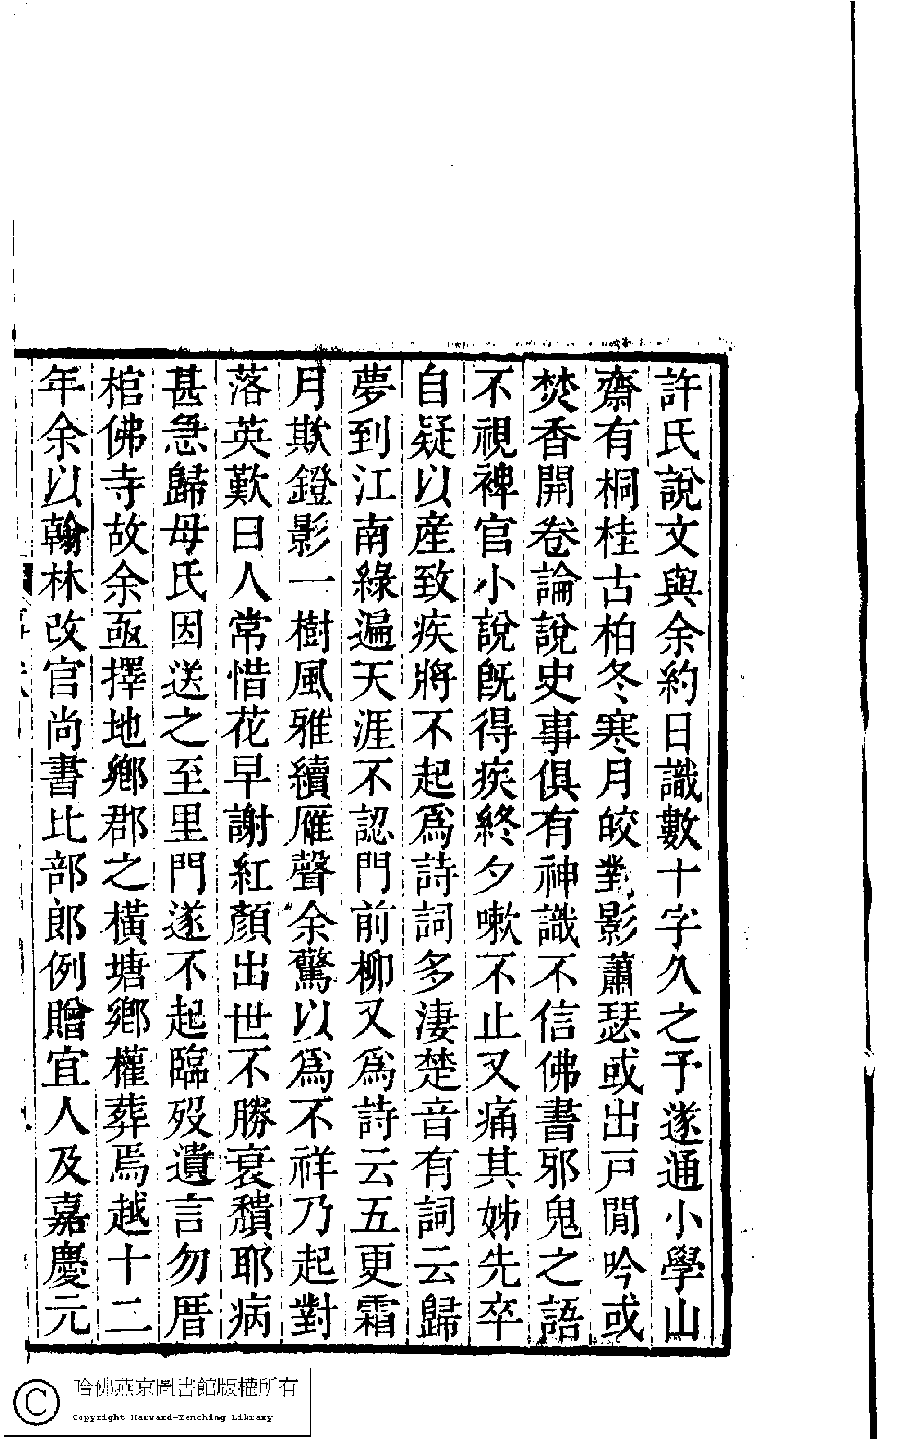 許氏說文與余約日識數十字久之予遂通小學山
齋有桐桂古柏冬寒月皎對影蕭瑟或出戸閒吟或
焚香開卷論說史事俱有神識不信佛書邪鬼之語
不視裨官小說旣得疾終夕嗽不止又痛其姊先卒
自疑以産致疾將不起爲詩詞多淒楚音有詞云歸
夢到江南綠遍天涯不認門前柳又爲詩云五更霜
月欺鐙影一樹風雅續雁聲余驚以爲不祥乃起對
落英歎曰人常惜花早謝紅顏出世不勝衰穨耶病
甚急歸母氏因送之至里門遂不起臨歿遺言勿厝
棺佛寺故余亟擇地鄉郡之橫塘鄉權葬焉越十二
年余以翰林改官尚書比部郎例贈宜人及嘉慶元
哈佛燕京圖書館版權所有
Copyright Harvard-Yenching Library